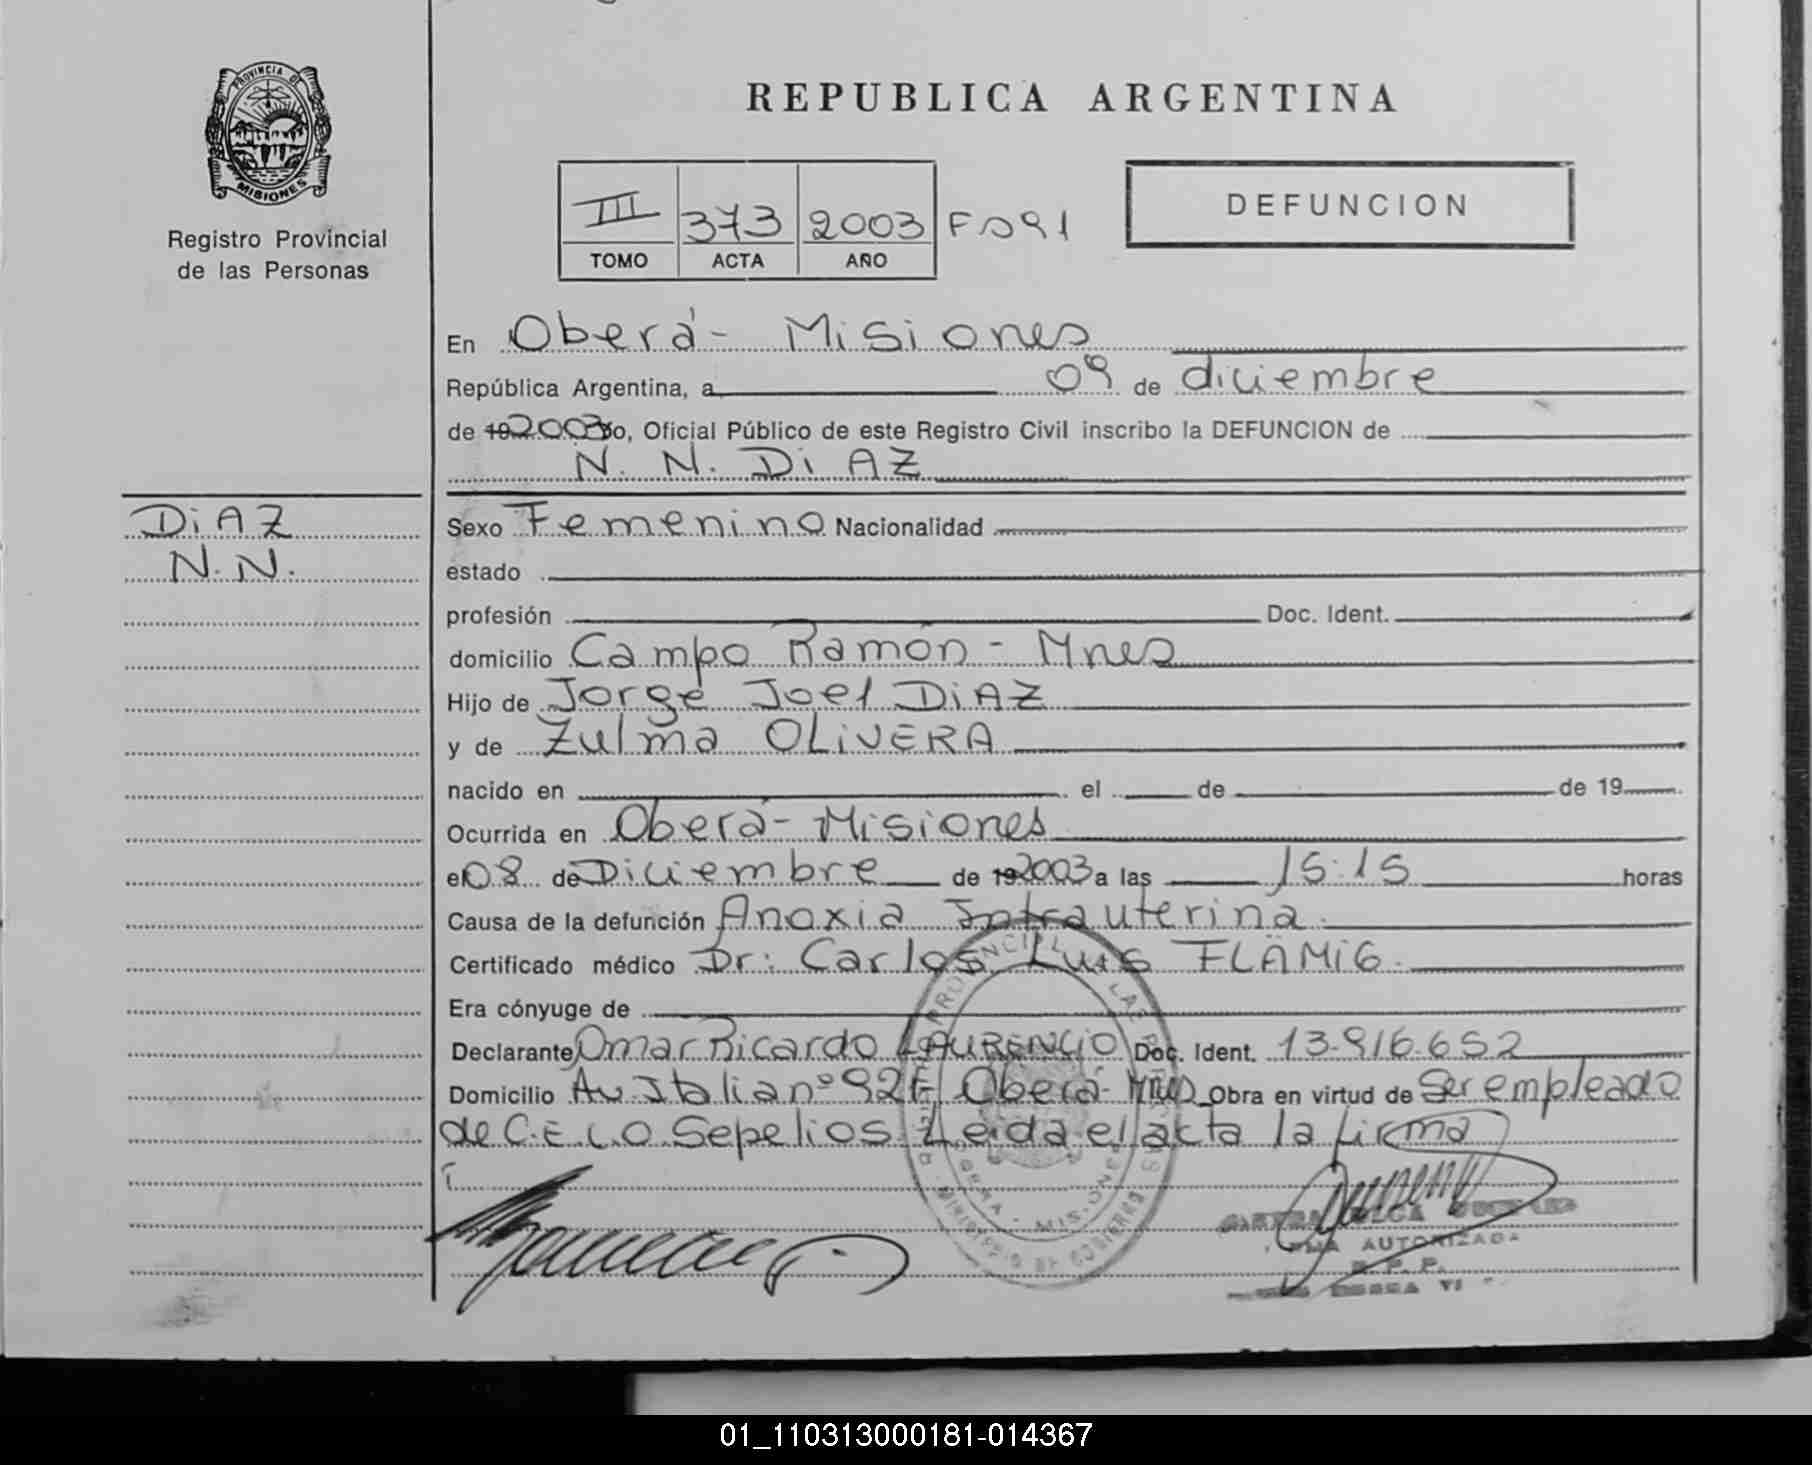 PROVINCIA DE
MISIONES
Registro Provincial
de las Personas
REPUBLICA ARGENTINA
DEFUNCION
III 373 2003 Fº 91
TOMO ACTA AÑO
En Oberá - Misiones
República Argentina, a 09 de diciembre
de 19 2003 Yo, Oficial Público de este Registro Civil inscribo la DEFUNCION de
N. N. DiAZ
DiAZ
N. N.
Sexo Femenino Nacionalidad
estado
profesión Doc. Ident.
domicilio Campo Ramón - Mnes
Hijo de Jorge Joel DiAZ
y de Zulma OLiVERA
nacido en el de de 19
Ocurrida en Oberá - Misiones
el 08 de Diciembre de 19 2003 a las 15:15 horas
Causa de la defunción Anoxia Intrauterina.
Certificado médico Dr: Carlos Luis FLÄMiG.
Era cónyuge de
Declarante Omar Ricardo LAURENCiO Doc. Ident. 13.916.652
Domicilio Av. Italia nº Oberá - Mnes Obra en virtud de Ser empleado
de C.E.L.O Sepelios Leida el acta la firma
AUTORIZADA
R. P. P.
01_110313000181-014367